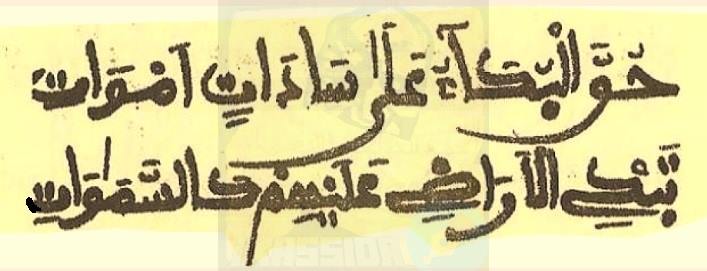 حَقَّ الْبُكَآءُ عَلَى سَادَاتٍ اَمْوَاتِ
تَبْكِي الْاَرَاضِي عَلَيْهِمْ كَالسَّمَوَاتِ